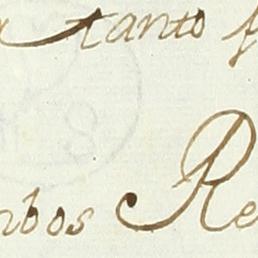 tanto
mbos Re